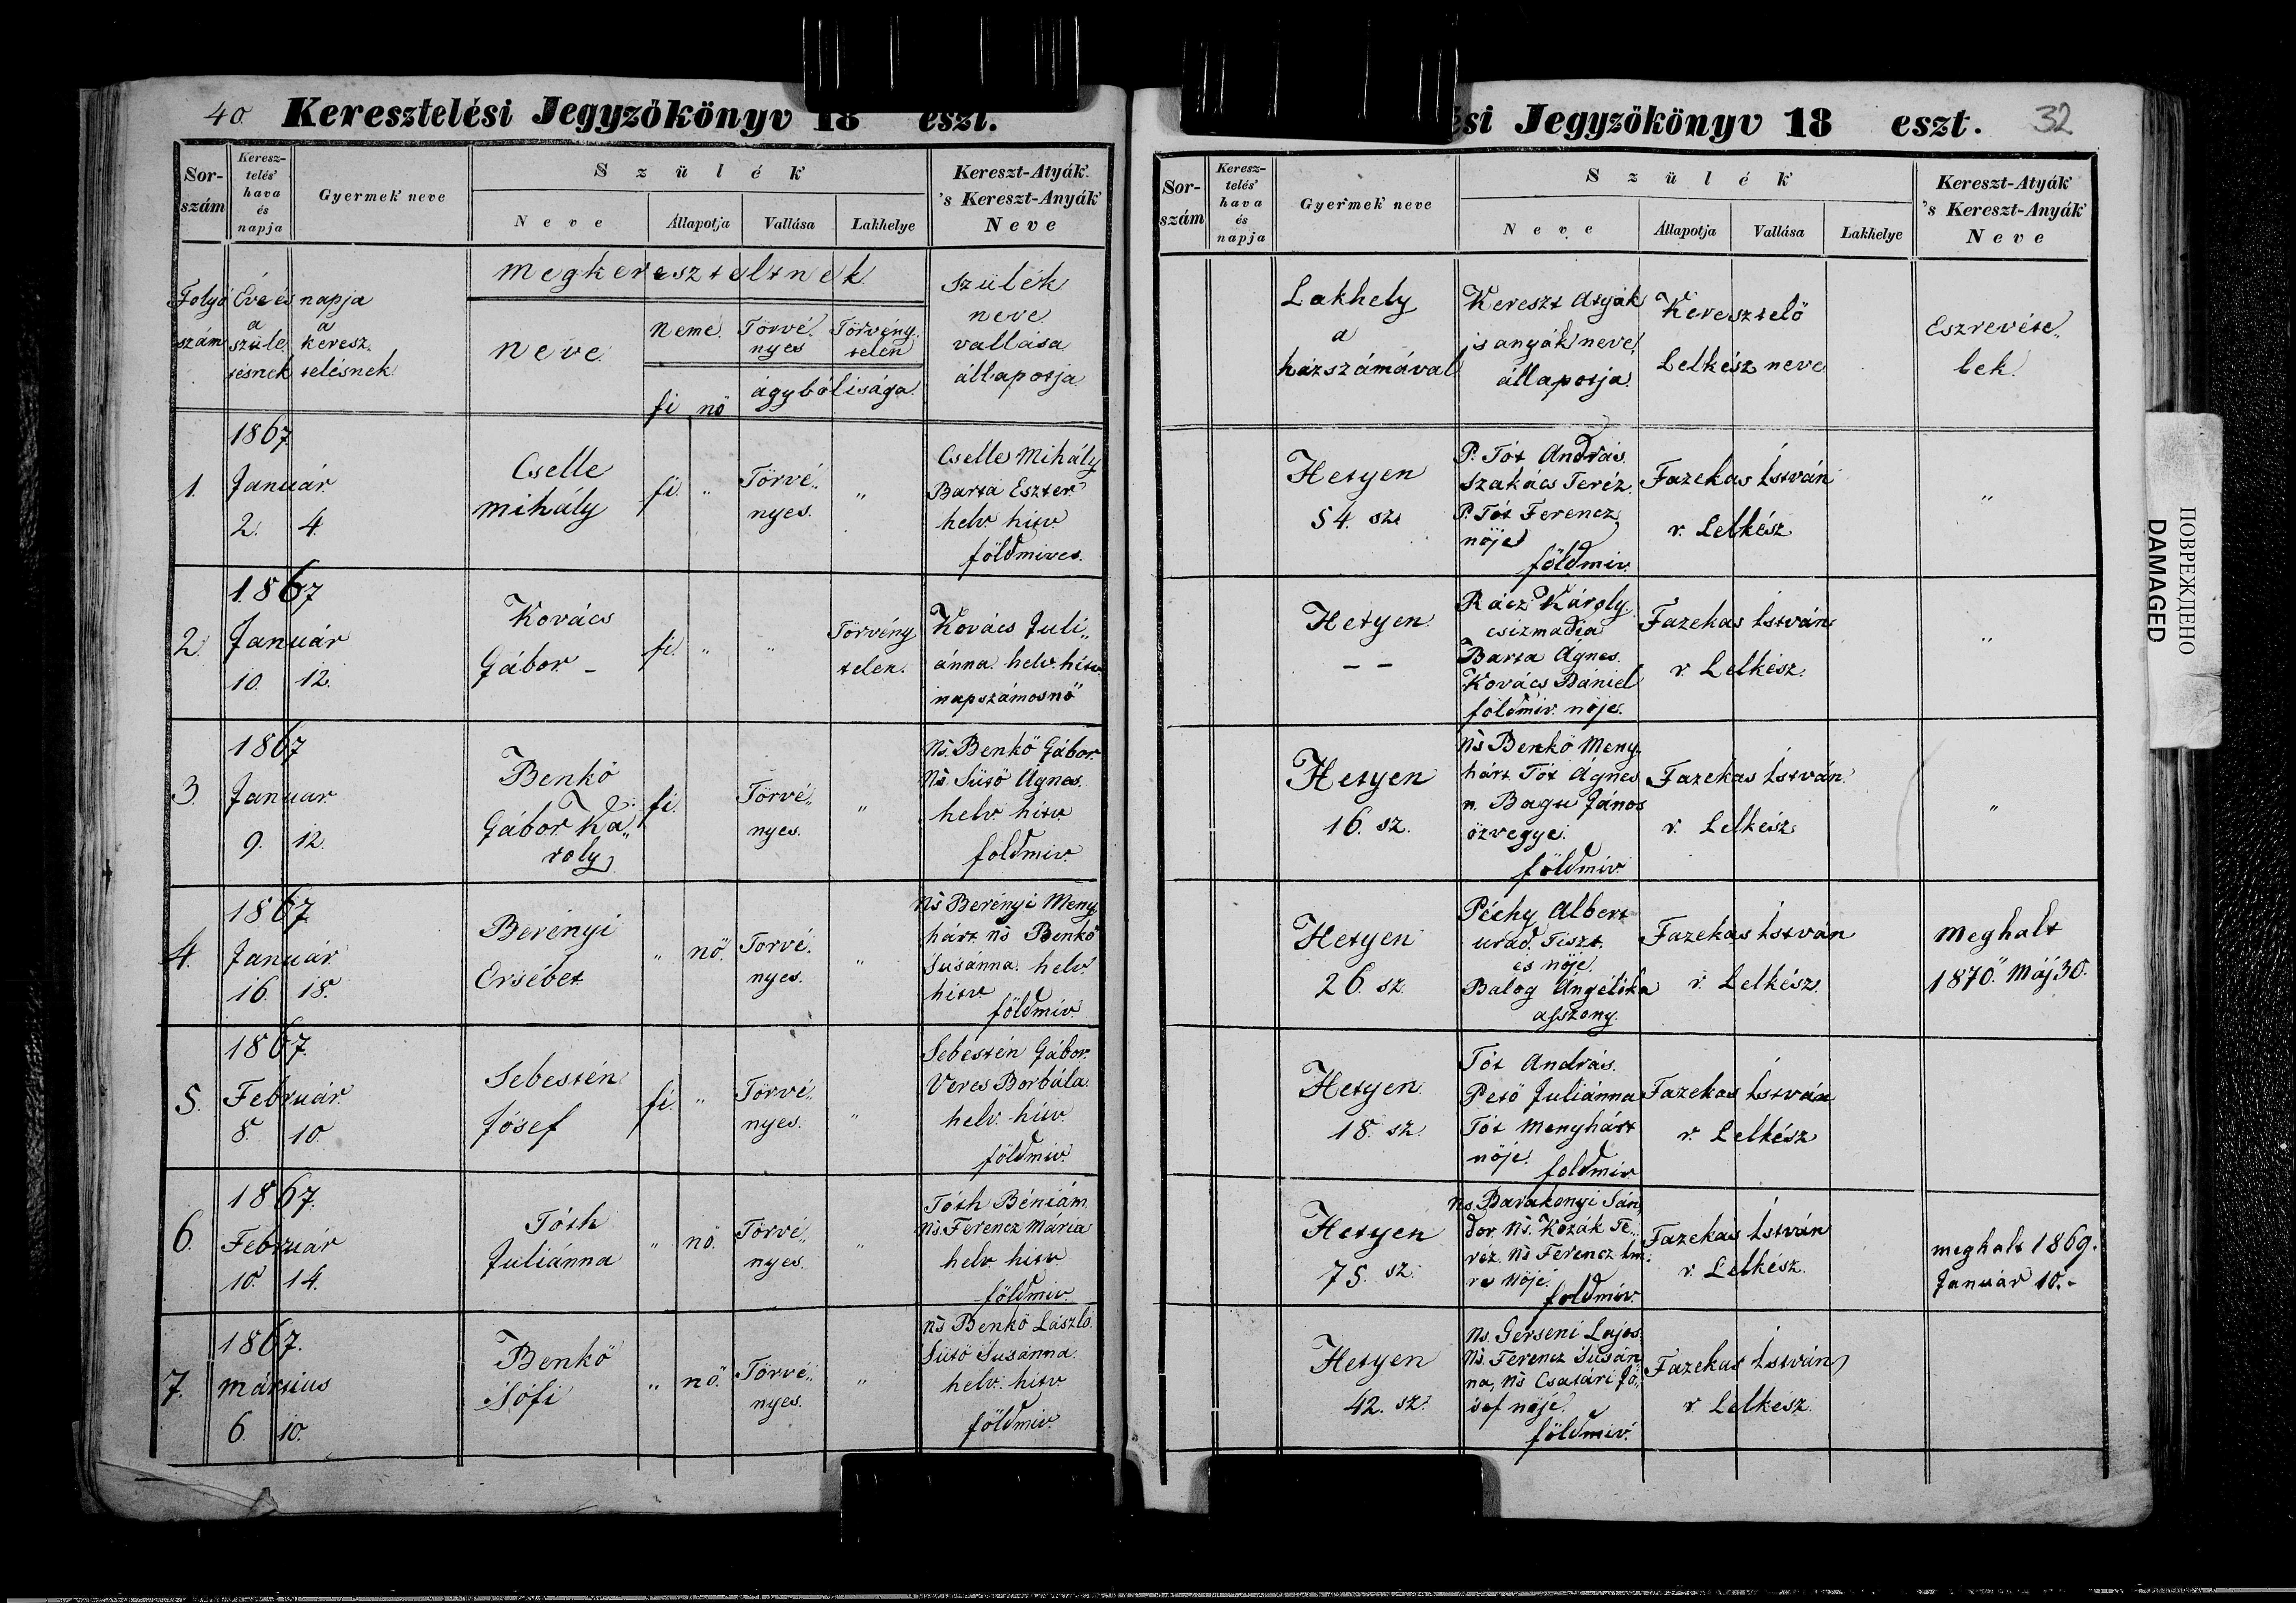 40. Keresztelési Jegyzőkönyv 18 eszt.
Sor-
szám
Keresz-
telés'
hava
és
napja
Gyermek neve
Szülék
Neve
Állapotja
Vallása
Lakhelye
Kereszt-Atyák
's Kereszt-Anyák
Neve
Folyó
szám
Éve és napja
a a
szüle keresz
tésnek telésnek
megkereszteltnek
neve
neme
fi nö
Törvé
nyes
Törvény
telen
ágybólisága
szülék
neve
vallása
állapotja
1.
1867
Január
2. 4.
Cselle
mihály
fi. "
Törvé,,
nyes.
"
Cselle Mihály
Barta Eszter
helv. hitv
földmives.
2.
1867
Január
10. 12.
Kovács
Gábor –
fi. "
"
Törvény
telen.
Kovács Juli,,
ánna helv. hitv
napszámosnö
3.
1867
Januar
9. 12.
Benkö
Gábor Ká,,
roly
fi.
Törvé,,
nyes.
"
Ns. Benkö Gábor
Ns. Sütö Agnes.
helv. hitv
foldmiv.
4.
1867
Január
16. 18.
Berényi
Ersébet
" nö.
Torvé,,
nyes.
"
Ns Berényi Meny
hárt ns Benkö
Susánna helv.
hitv
földmiv
5.
1867.
Február
8. 10.
Sebestén
Jósef
fi. "
Törvé,,
nyes.
"
Sebestén Gábor.
Veres Borbála.
helv. hitv.
földmiv.
6.
1867.
Február
10. 14.
Tóth
Juliánna
" nö.
Törvé,,
nyes.
"
Tóth Béniám
Ns. Ferencz Mária
helv. hitv.
földmiv.
7.
1867.
március
6. 10.
Benkö
Sófi
" nö.
Törvé,,
nyes.
"
ns Benkö László.
Sütö Susánna.
helv. hitv.
földmiv.
ési Jegyzőkönyv 18 eszt. 32
Sor-
szám
Keresz-
telés'
hava
és
napja
Gyermek neve
Szülék
Neve
Állapotja
Vallása
Lakhelye
Kereszt-Atyák
's Kereszt-Anyák
Neve
Lakhely
a
házszámával
Kereszt atyák
s anyák neve,
állapotja.
Keresztelö
Lelkész neve
Eszrevéte,,
lek.
Hetyen
54. sz.
P. Tót András.
Szakács Teréz.
P. Tót Ferencz
nöje
földmiv.
Fazekas István
r. Lelkész
"
Hetyen.
– –
Rácz Károly
csizmadia
Barta Ágnes.
Kovács Dániel
földmiv. nöje.
Fazekas István
r. Lelkész.
"
Hetyen
16. sz.
ns Benkö Meny,
hárt Tót Ágnes
n. Bagu János
özvegye.
földmiv.
Fazekas István
r. Lelkész
"
Hetyen
26. sz.
Péchy Albert
urad. Tiszt.
és nöje
Balog Angélika
asszony.
Fazekas István
r. Lelkész.
meghalt
1870. Máj 30.
Hetyen.
18. sz.
Tót András.
Petö Juliánna
Tót Menyhárt
nöje.
foldmiv
Fazekas István
r. Lelkész
Hetyen
75. sz.
Ns. Barakonyi Sán
dor. Ns. Kozák Te,,
réz Ns Ferencz Im,
re nöje.
foldmiv.
Fazekas István
r. Lelkész.
meghalt 1869.
Január 10. –
Hetyen
42. sz.
Ns. Gerseni Lajos.
Ns. Ferencz Susán
na, Ns Csatári Jó,,
sef nöje
földmiv.
Fazekas István
r. Lelkész.
ПОВРЕЖДЕНО
DAMAGED